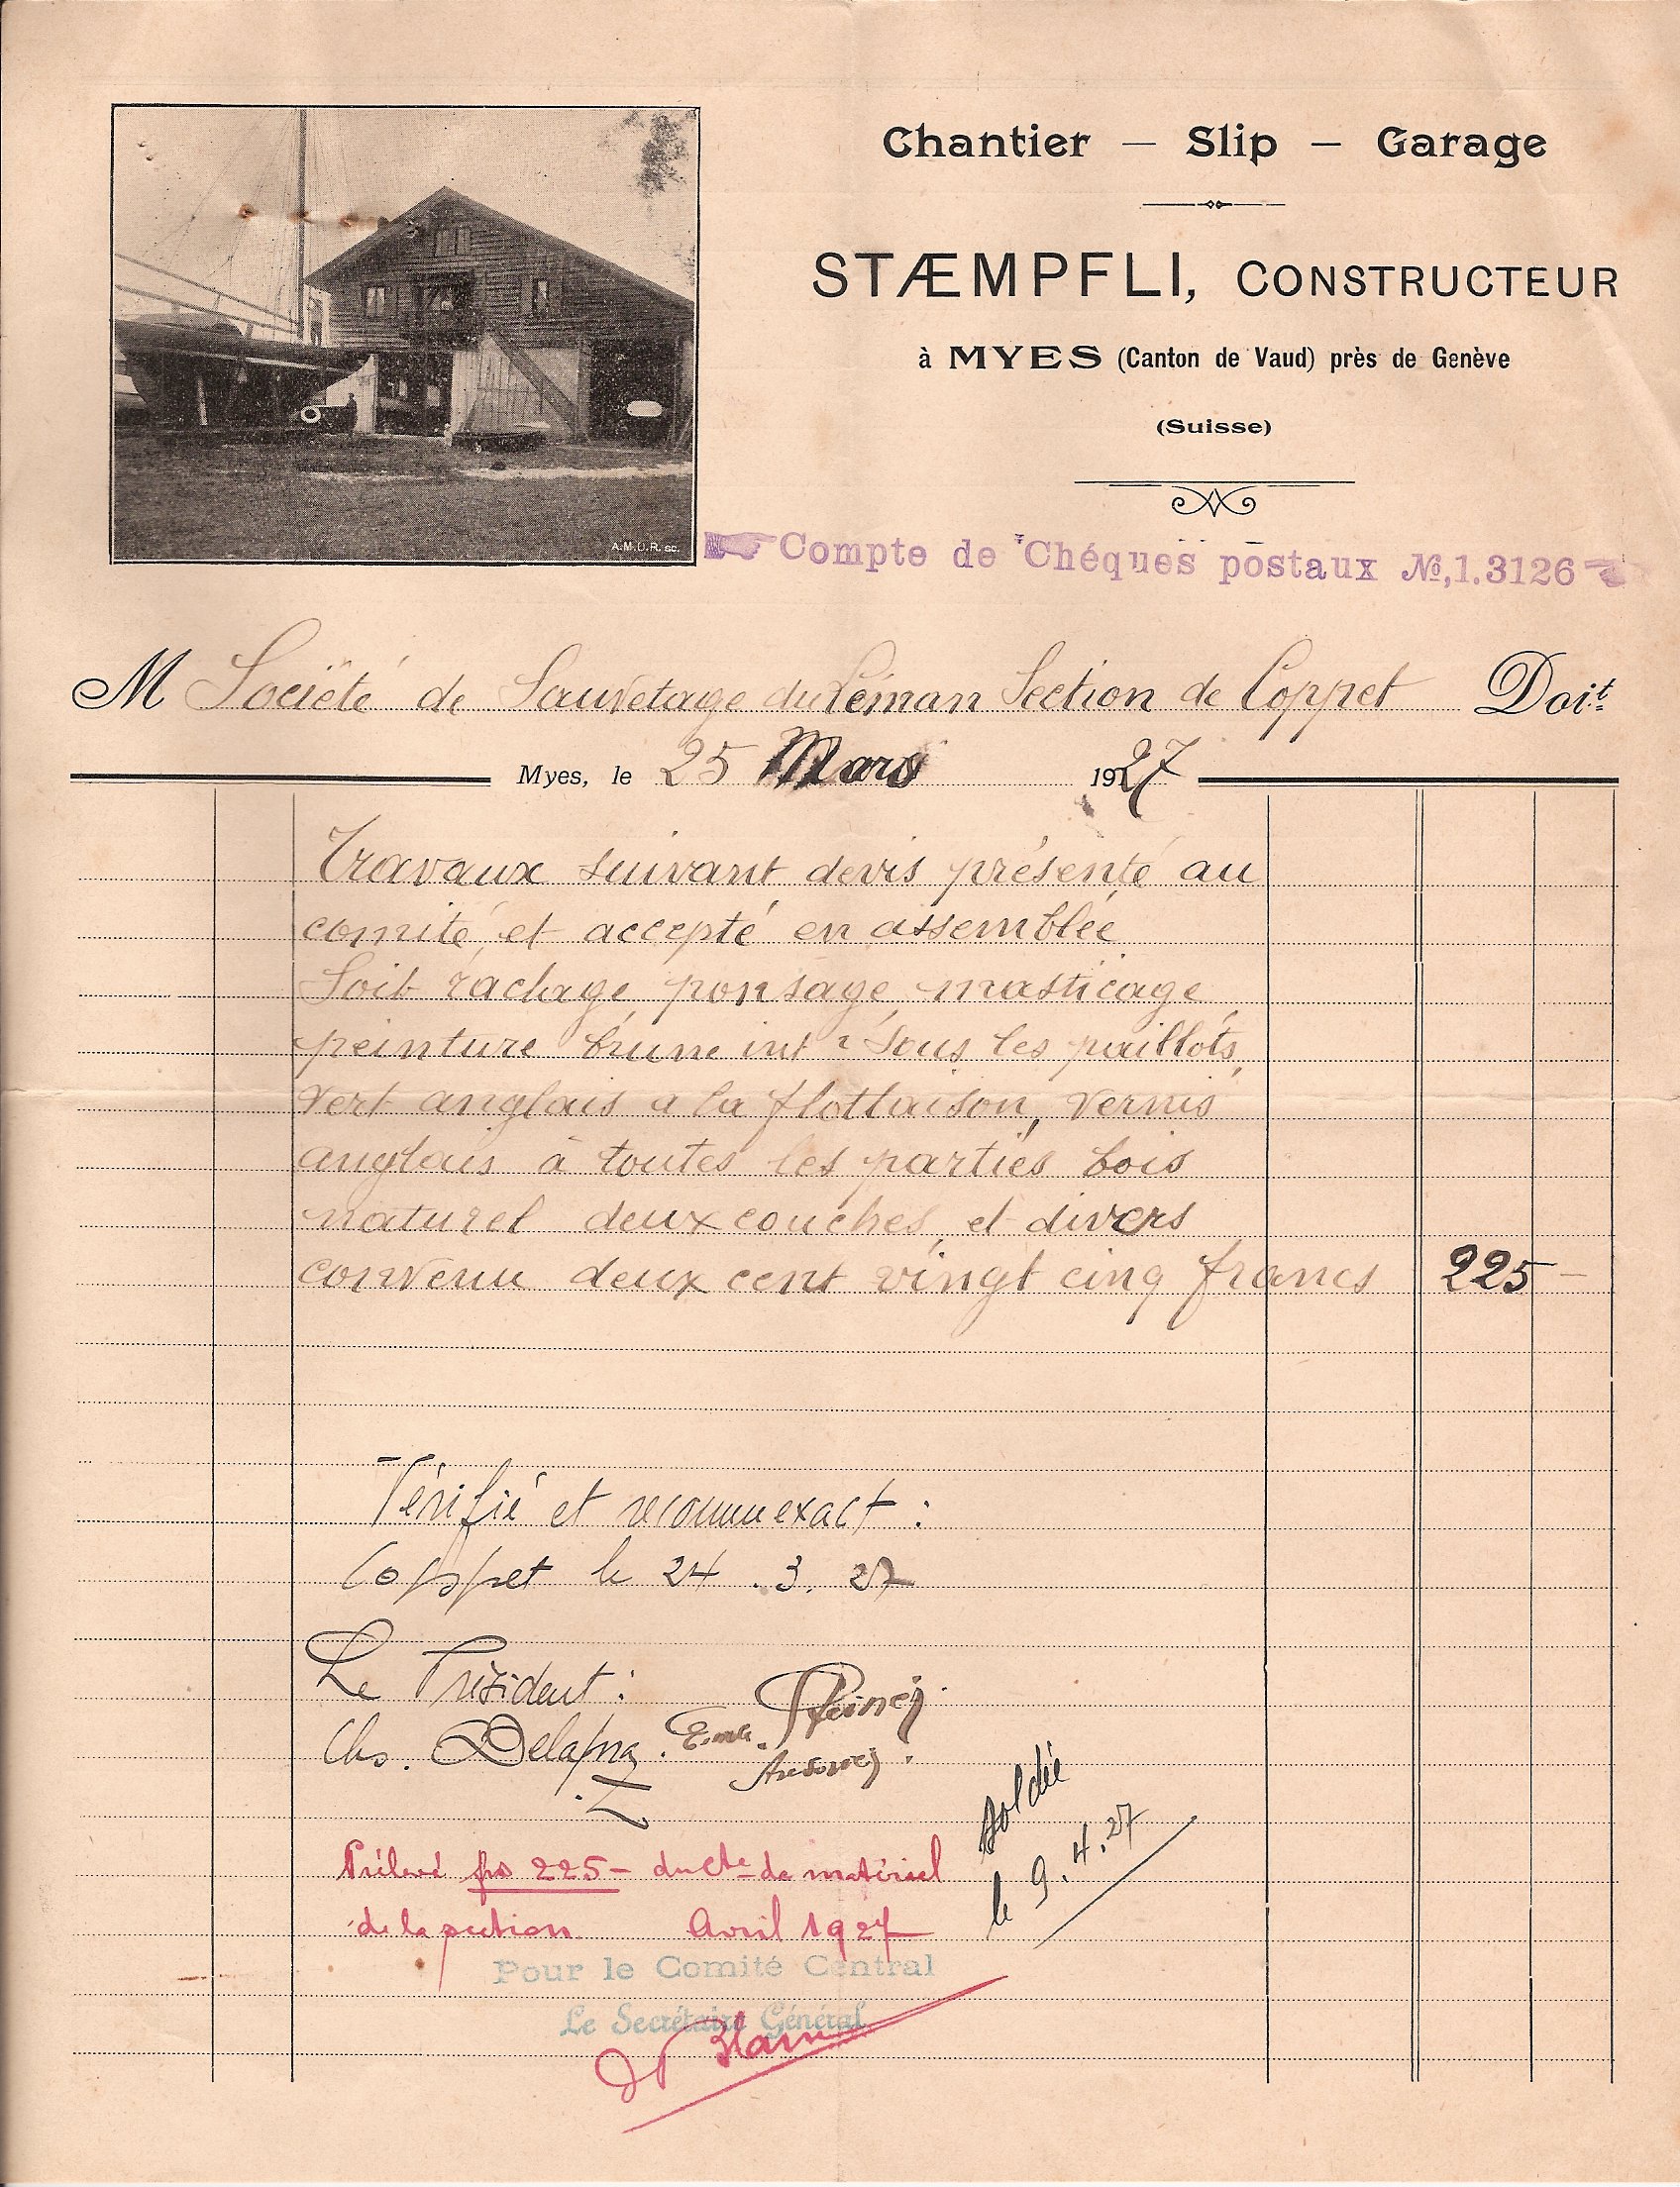 Chantier — Slip — Garage
STÆMPFLI, CONSTRUCTEUR
à MYES (Canton de Vaud) près de Genève
(Suisse)
A.M.D.R. sc.
Compte de Chéques postaux №,1.3126
M Société de Sauvetage du Léman Section de Coppet Doit
Myes, le 25 Mars 1927
Travaux suivant devis présenté au
comité et accepté en assemblée
Soit raclage, ponsage, masticage,
peinture brune intr sous les paillots,
vert anglais a la flottaison, vernis
anglais à toutes les parties bois
naturel deux couches et divers
convenu deux cent vingt cinq francs 225 –
Vérifié et reconnu exact :
Coppet le 24 . 3. 27
Le Président :
Chs.
soldée
le 9.4.27
Prélevé frs 225 – du cte de matériel
de la section Avril 1927
Pour le Comité Central
Le Secrétaire Général